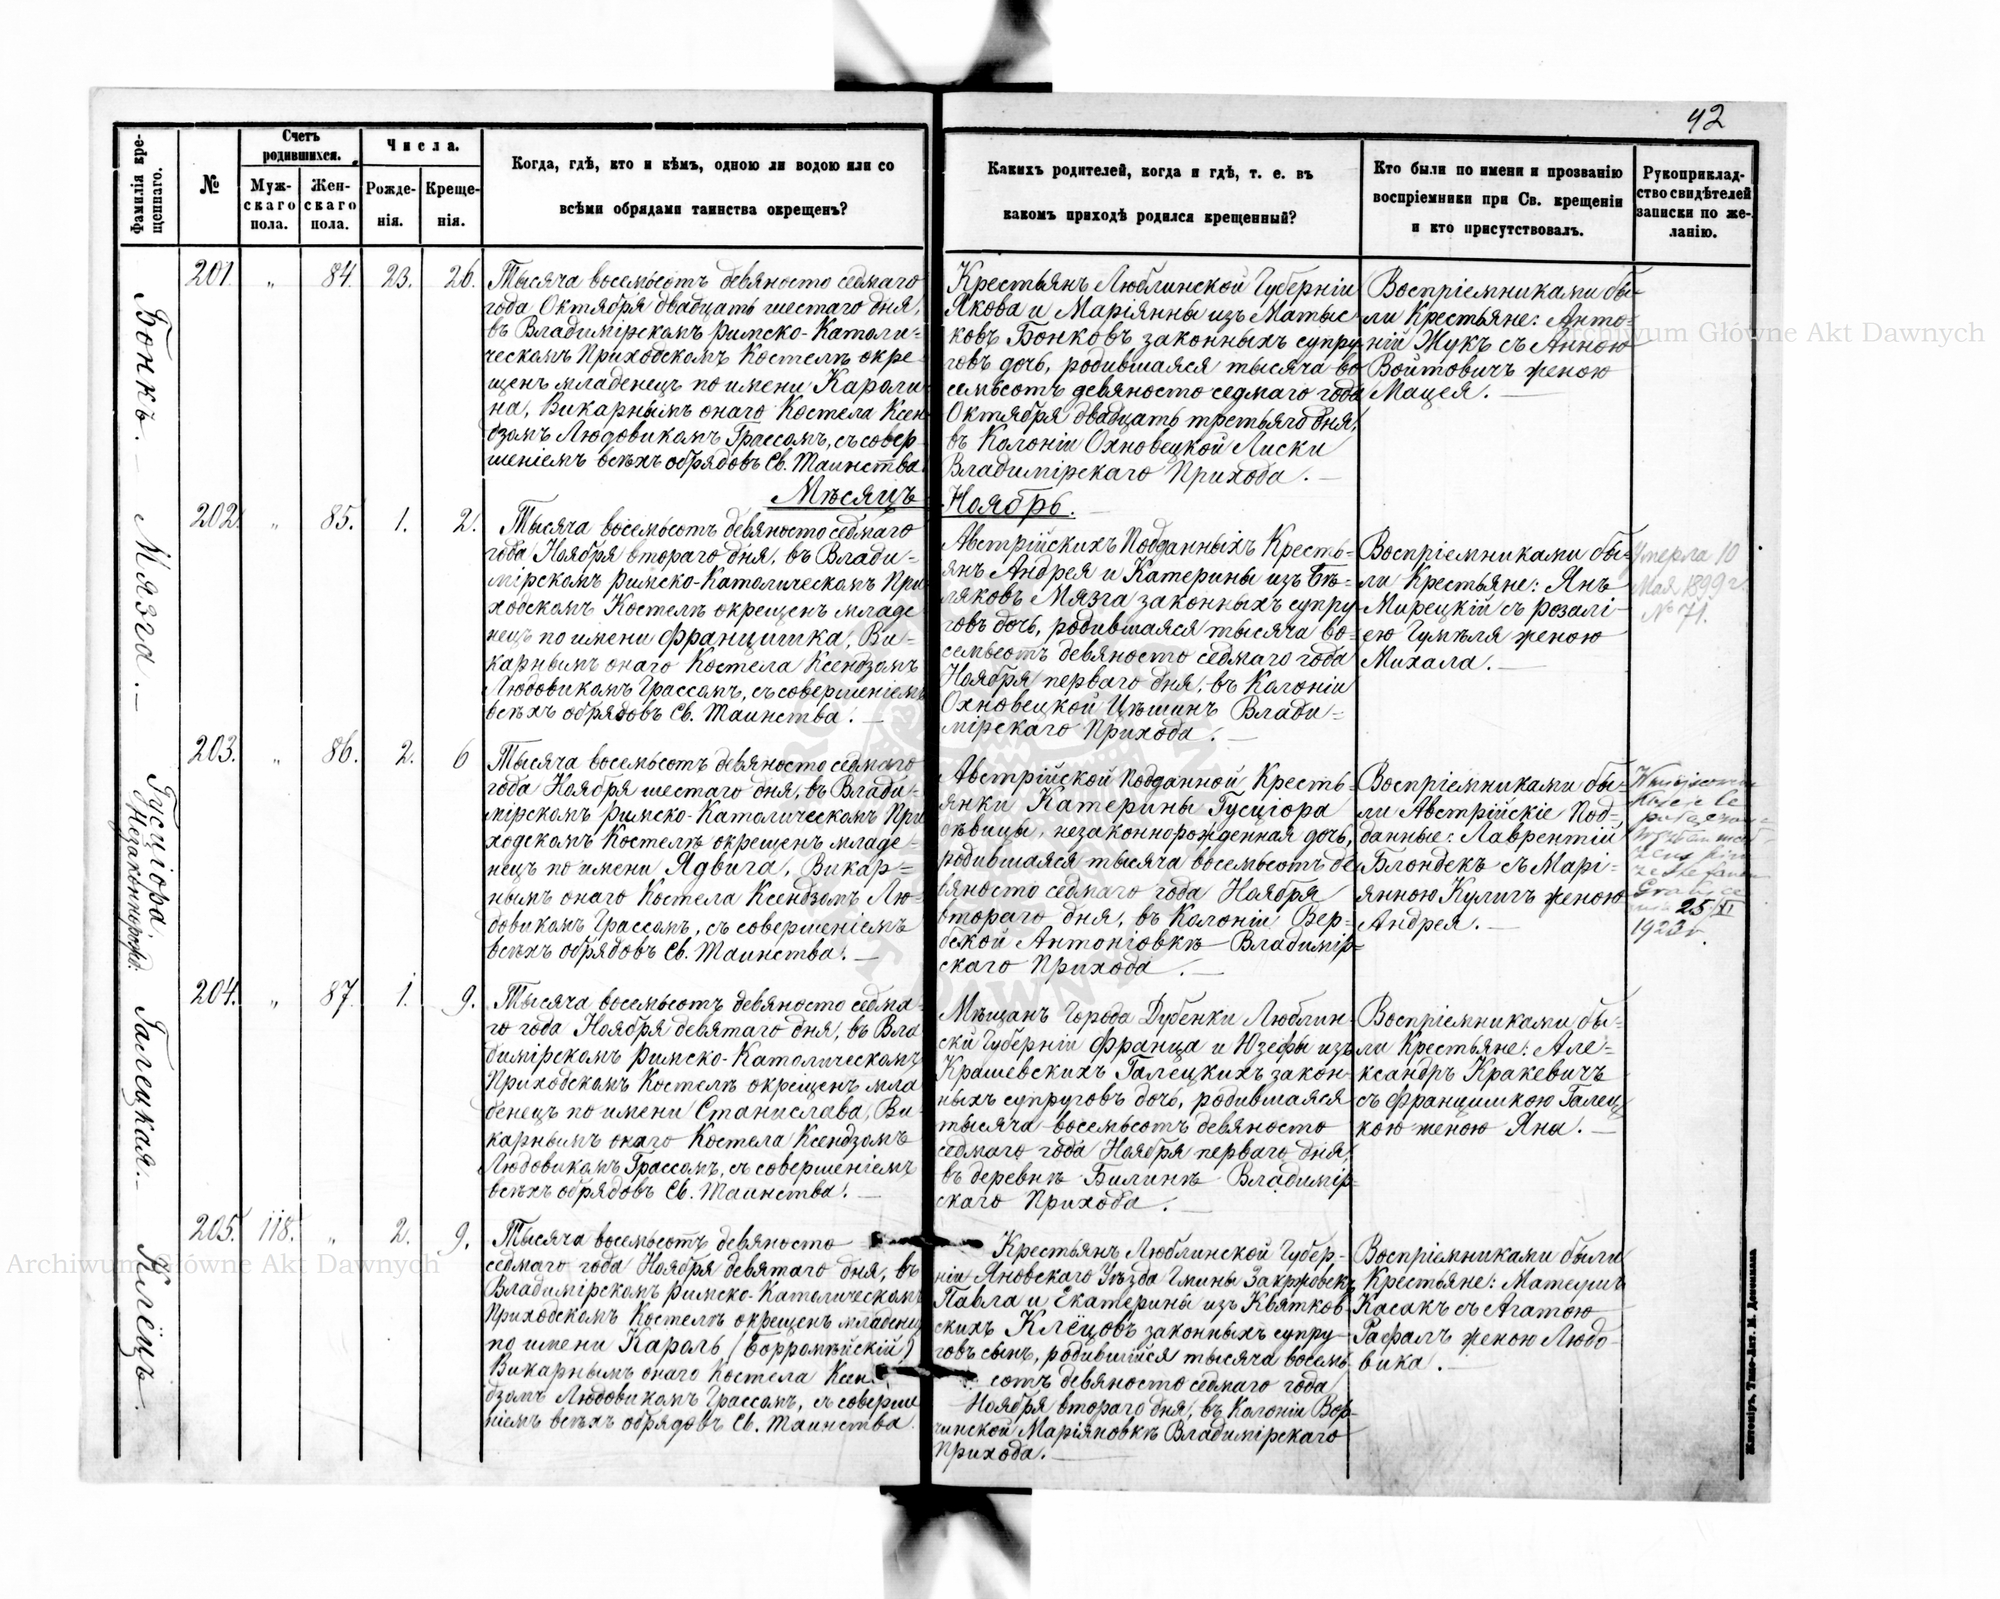 42
Фамилія кре-
щеннаго.
№
Счетъ
родившихся.
Муж-
скаго
пола.
Жен-
скаго
пола.
Числа.
Рожде-
нія.
Креще-
нія.
Когда, гдѣ, кто и кѣмъ, одною ли водою или со
всѣми обрядами таинства окрещенъ?
Какихъ родителей, когда и гдѣ, т. е. въ
какомъ приходѣ родился крещенный?
Кто были по имени и прозванію
воспріемники при Св. крещеніи
и кто присутствовалъ.
Рукоприклад-
ство свидѣтелей
записки по же-
ланію.
Бонкъ. —
201. „ 84. 23. 26.
Тысяча восемьсотъ девяносто седмаго
года Октября двадцать шестаго дня,
въ Владимірскомъ Римско-Католи-
ческомъ Приходскомъ Костелѣ окре-
щенъ младенецъ по имени Кароли-
на, Викарнымъ онаго Костела Ксен-
дзомъ Людовикомъ Грассомъ, съ совер-
шеніемъ всѣхъ обрядовъ Св. Таинства
Крестьянъ Люблинской Губерніи
Якова и Маріянны изъ Матыс-
ковъ Бонковъ законныхъ супру-
говъ дочь, родившаяся тысяча во-
семьсотъ девяносто седмаго года
Октября двадцать третьяго дня,
въ Колоніи Охновецкой Лиски
Владимірскаго Прихода. —
Воспріемниками бы-
ли Крестьяне: Анто-
ній Жукъ съ Анною
Войтовичъ женою
Мацея. —
Мѣсяцъ Ноябрь.
Мязга. —
202. „ 85. 1. 2.
Тысяча восемьсотъ девяносто седмаго
года Ноября втораго дня, въ Влади-
мірскомъ Римско-Католическомъ При-
ходскомъ Костелѣ окрещенъ младе-
нецъ по имени Францишка, Ви-
карнымъ онаго Костела Ксендзомъ
Людовикомъ Грассомъ, съ совершеніемъ
всѣхъ обрядовъ Св. Таинства. —
Австрійскихъ Подданныхъ Кресть-
янъ Андрея и Катерины изъ Бѣ-
ляковъ Мязга законныхъ супру-
говъ дочь, родившаяся тысяча во-
семьсотъ девяносто седмаго года
Ноября перваго дня, въ Колоніи
Охновецкой Цѣшинъ Влади-
мірскаго Прихода. —
Воспріемниками бы-
ли Крестьяне: Янъ
Мирецкій съ Розалі-
ею Гумѣля женою
Михала. —
Умерла 10
Мая 1899 г.
№ 71.
Гусціора
(Незаконнорожд.
203. „ 86. 2. 6
Тысяча восемьсотъ девяносто седмаго
года Ноября шестаго дня, въ Влади-
мірскомъ Римско-Католическомъ При-
ходскомъ Костелѣ окрещенъ младе-
нецъ по имени Ядвига, Викар-
нымъ онаго Костела Ксендзомъ Лю-
довикомъ Грассомъ, съ совершеніемъ
всѣхъ обрядовъ Св. Таинства. —
Австрійской Подданной Кресть-
янки Катерины Гусціора
дѣвицы, незаконнорожденная дочь,
родившаяся тысяча восемьсотъ де-
вяносто седмаго года Ноября
втораго дня, въ Колоніи Вер-
бской Антоновкѣ Владимір-
скаго Прихода. —
Воспріемниками бы-
ли Австрійскіе Под-
данные: Лаврентій
Блондекъ съ Марі-
янною Куличъ женою
Андрея. —
25/XI
1923 r.
Галецкая. —
204. „ 87. 1. 9.
Тысяча восемьсотъ девяносто седма-
го года Ноября девятаго дня, въ Вла-
димірскомъ Римско-Католическомъ
Приходскомъ Костелѣ окрещенъ мла-
денецъ по имени Станислава, Ви-
карнымъ онаго Костела Ксендзомъ
Людовикомъ Грассомъ, съ совершеніемъ
всѣхъ обрядовъ Св. Таинства. —
Мѣщанъ Города Дубенки Люблин-
скій Губерніи Франца и Юзефы изъ
Крашевскихъ Галецкихъ закон-
ныхъ супруговъ дочь, родившаяся
тысяча восемьсотъ девяносто
седмаго года Ноября перваго дня,
въ деревнѣ Билинѣ Владимір-
скаго Прихода. —
Воспріемниками бы-
ли Крестьяне: Але-
ксандръ Кракевичъ
съ Францишкою Галец-
кою женою Яна. —
Клёцъ.
205. 118. „ 2. 9.
Тысяча восемьсотъ девяносто
седмаго года Ноября девятаго дня, въ
Владимірскомъ Римско-Католическомъ
Приходскомъ Костелѣ окрещенъ младенец
по имени Кароль (Борромѣйскій)
Викарнымъ онаго Костела Ксен-
дзомъ Людовикомъ Грассомъ, съ соверше
ніемъ всѣхъ обрядовъ Св. Таинства.
Крестьянъ Люблинской Губер-
ніи Яновскаго Уѣзда Гмины Закржовекъ
Павла и Екатерины изъ Квятков-
скихъ Клёцовъ законныхъ супру-
говъ сынъ, родившійся тысяча восемь
сотъ девяносто седмаго года
Ноября втораго дня, въ Колоніи Вор-
чинской Маріяновкѣ Владимірскаго
Прихода. —
Воспріемниками были
Крестьяне: Матеушъ
Касакъ съ Агатою
Гафалъ женою Людо-
вика. —
Житомiръ, Типо-Лит. М. Дененмана
Archiwum Główne Akt Dawnych
Archiwum Główne Akt Dawnych